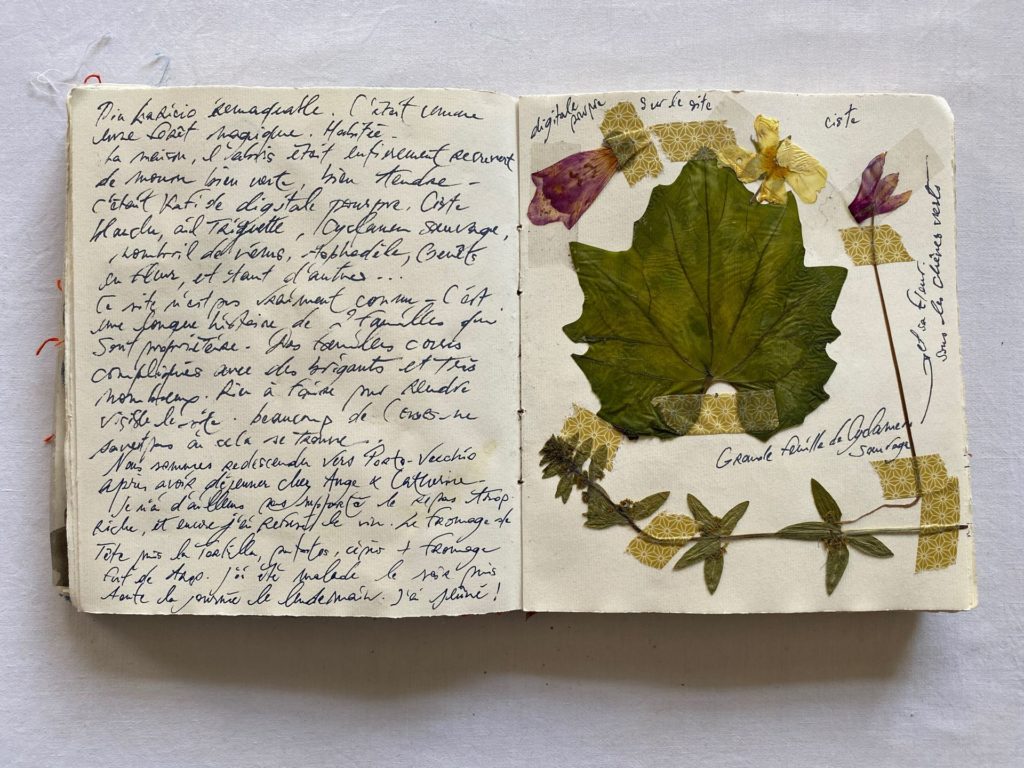 remarquable. C'était comme
une forêt magique. Habitée -
La maison, l'abris était entièrement recouvert
de mousse bien verte, bien tendre -
C'était de digitale pourpre, Ciste
blanche, ail Triquette, Cyclamen sauvage,
, nombril de vénus, Asphodèle, Genêts
en fleur, et tant d'autres ...
Ce site n'est pas vraiment connu - C'est
une longue histoire de 2 familles qui
sont propriétaire. Des familles corses
compliquées avec des brigants et très
nombreux. Rien à faire pour rendre
visible le site. beaucoup de Corses ne
savent pas où cela se trouve.
Nous sommes redescendu vers Porto-Vecchio
après avoir déjeuner chez Ange & Catherine -
Je n'ai d'ailleurs pas supporté le repas trop
Riche, et encore j'ai refusé le vin. Le fromage de
Tête puis la Tortilla, patates, + fromage
fut de trop. J'ai été malade le soir puis
toute la journée le lendemain. J'ai jeûné !
digitale
pourpre
sur le site
ciste
et sa fleur
sous les chênes verts
Grande feuille de Cyclamen
sauvage